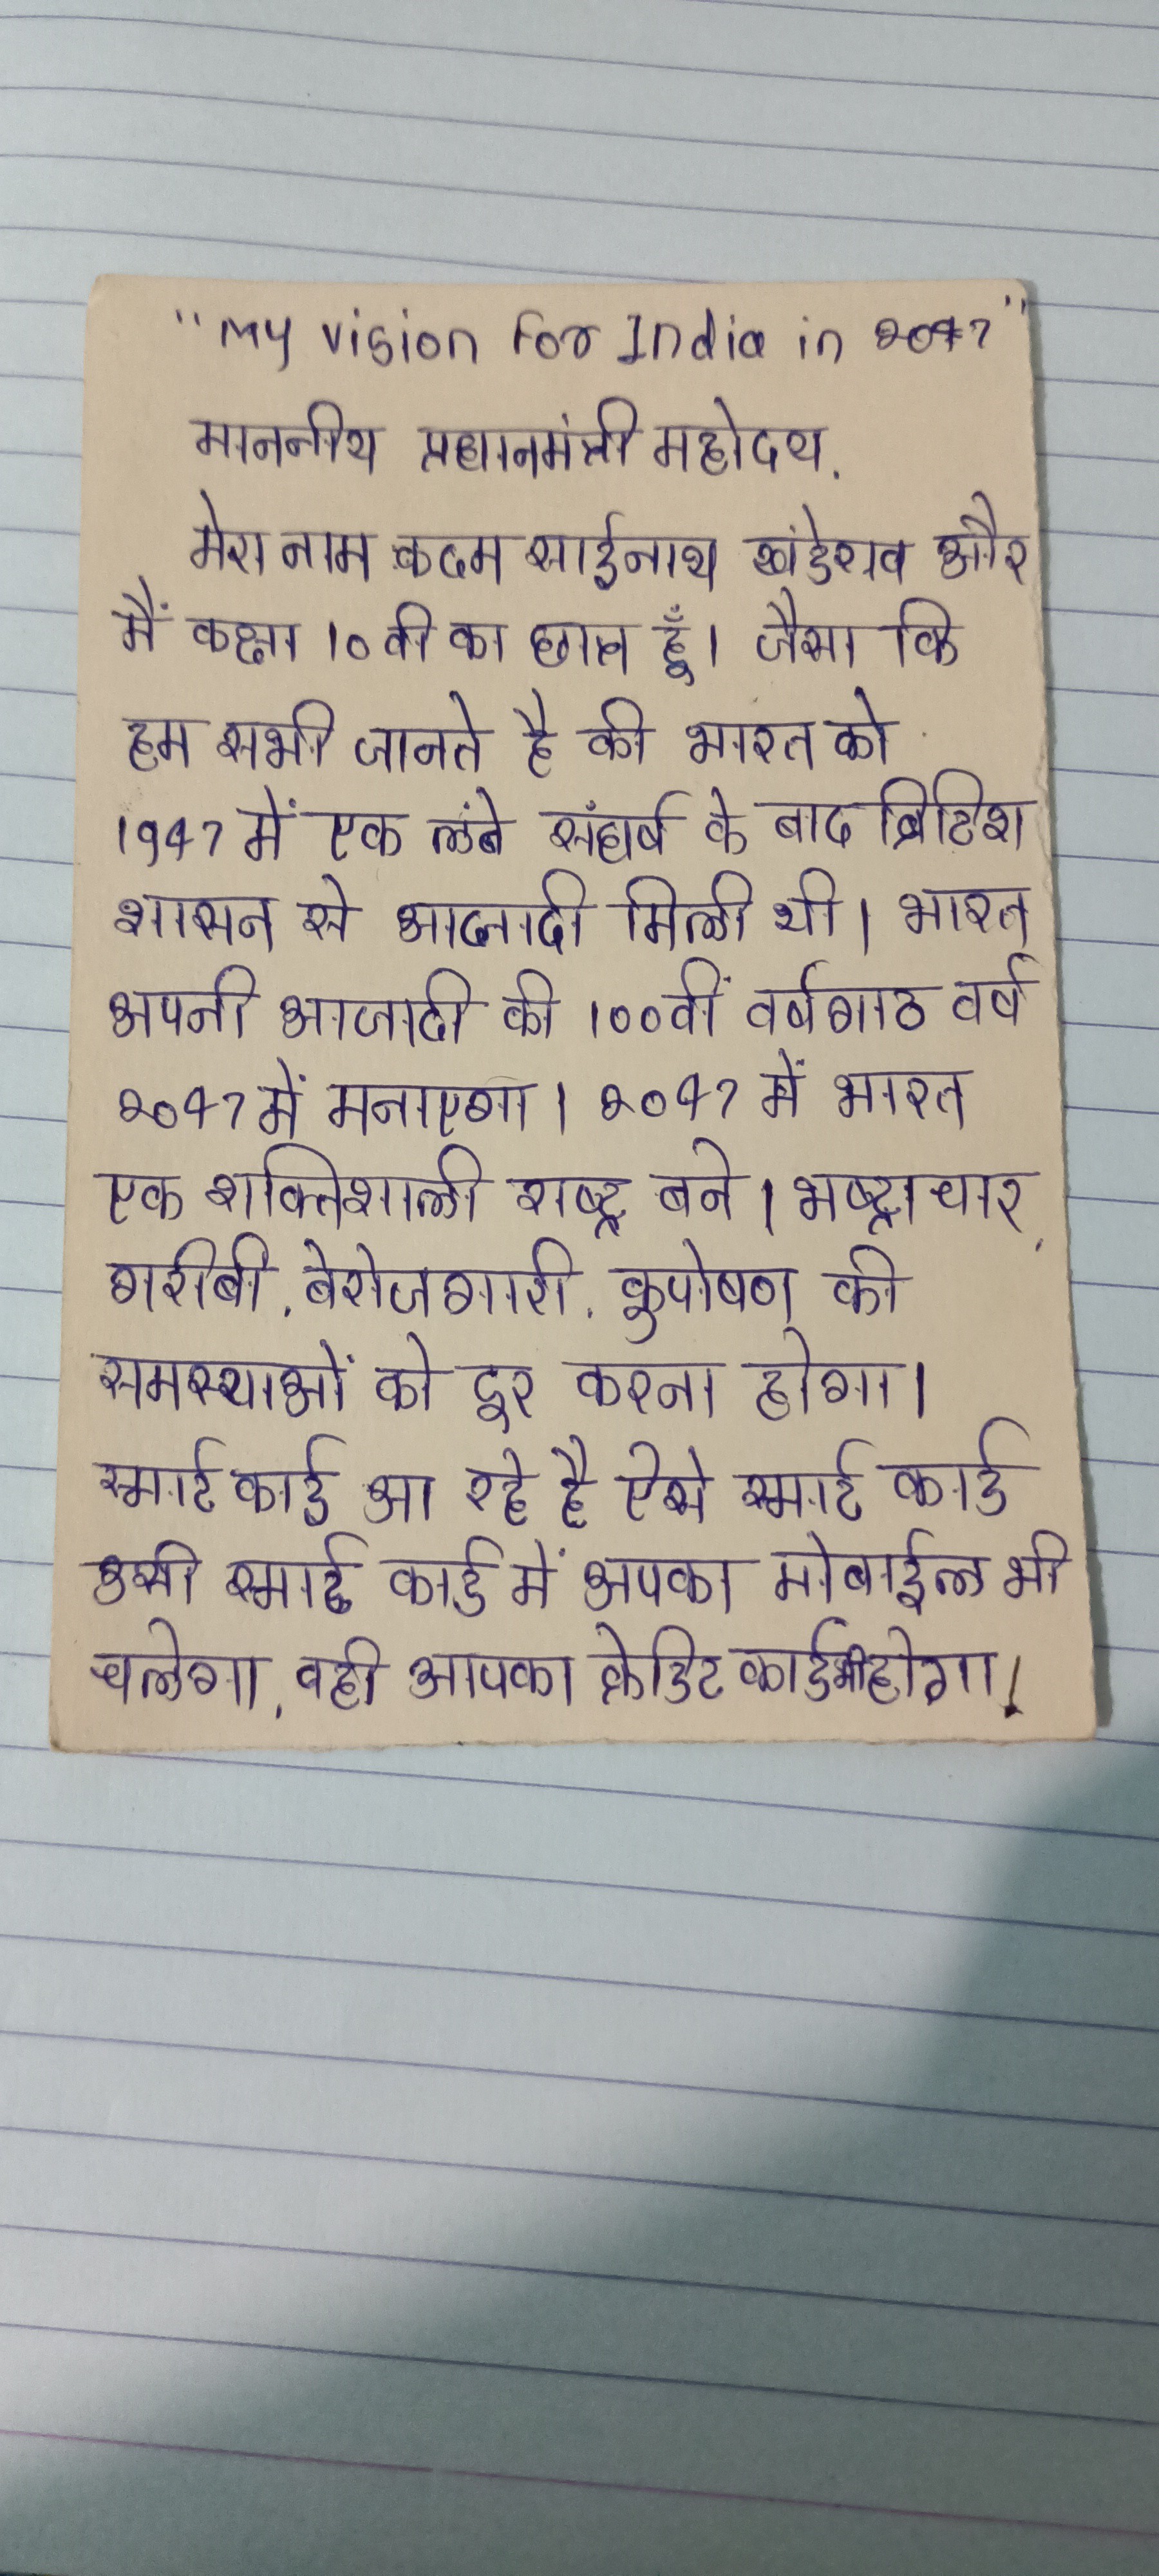 "My vision For India in 2047"
माननीय प्रधानमंत्री महोदय.
मेरा नाम कदम साईनाथ खंडेराव और
मैं कक्षा 10 वी का छात्र हूँ। जैसा कि
हम सभी जानते है की भारत को
1947 में एक लंबे संघर्ष के बाद ब्रिटिश
शासन से आजादी मिली थी। भारत
अपनी आजादी की 100वीं वर्षगाठ वर्ष
2047 में मनाएगा। 2047 में भारत
एक शक्तिशाली राष्ट्र बने। भष्ट्राचार,
गरीबी, बेरोजगारी, कुपोषण की
समस्याओं को दूर करना होगा।
स्मार्ट कार्ड आ रहे है ऐसे स्मार्ट कार्ड
उसी स्मार्ट कार्ड में अपका मोबाईल भी
चलेगा, वही आपका क्रेडिट कार्ड भी होगा।